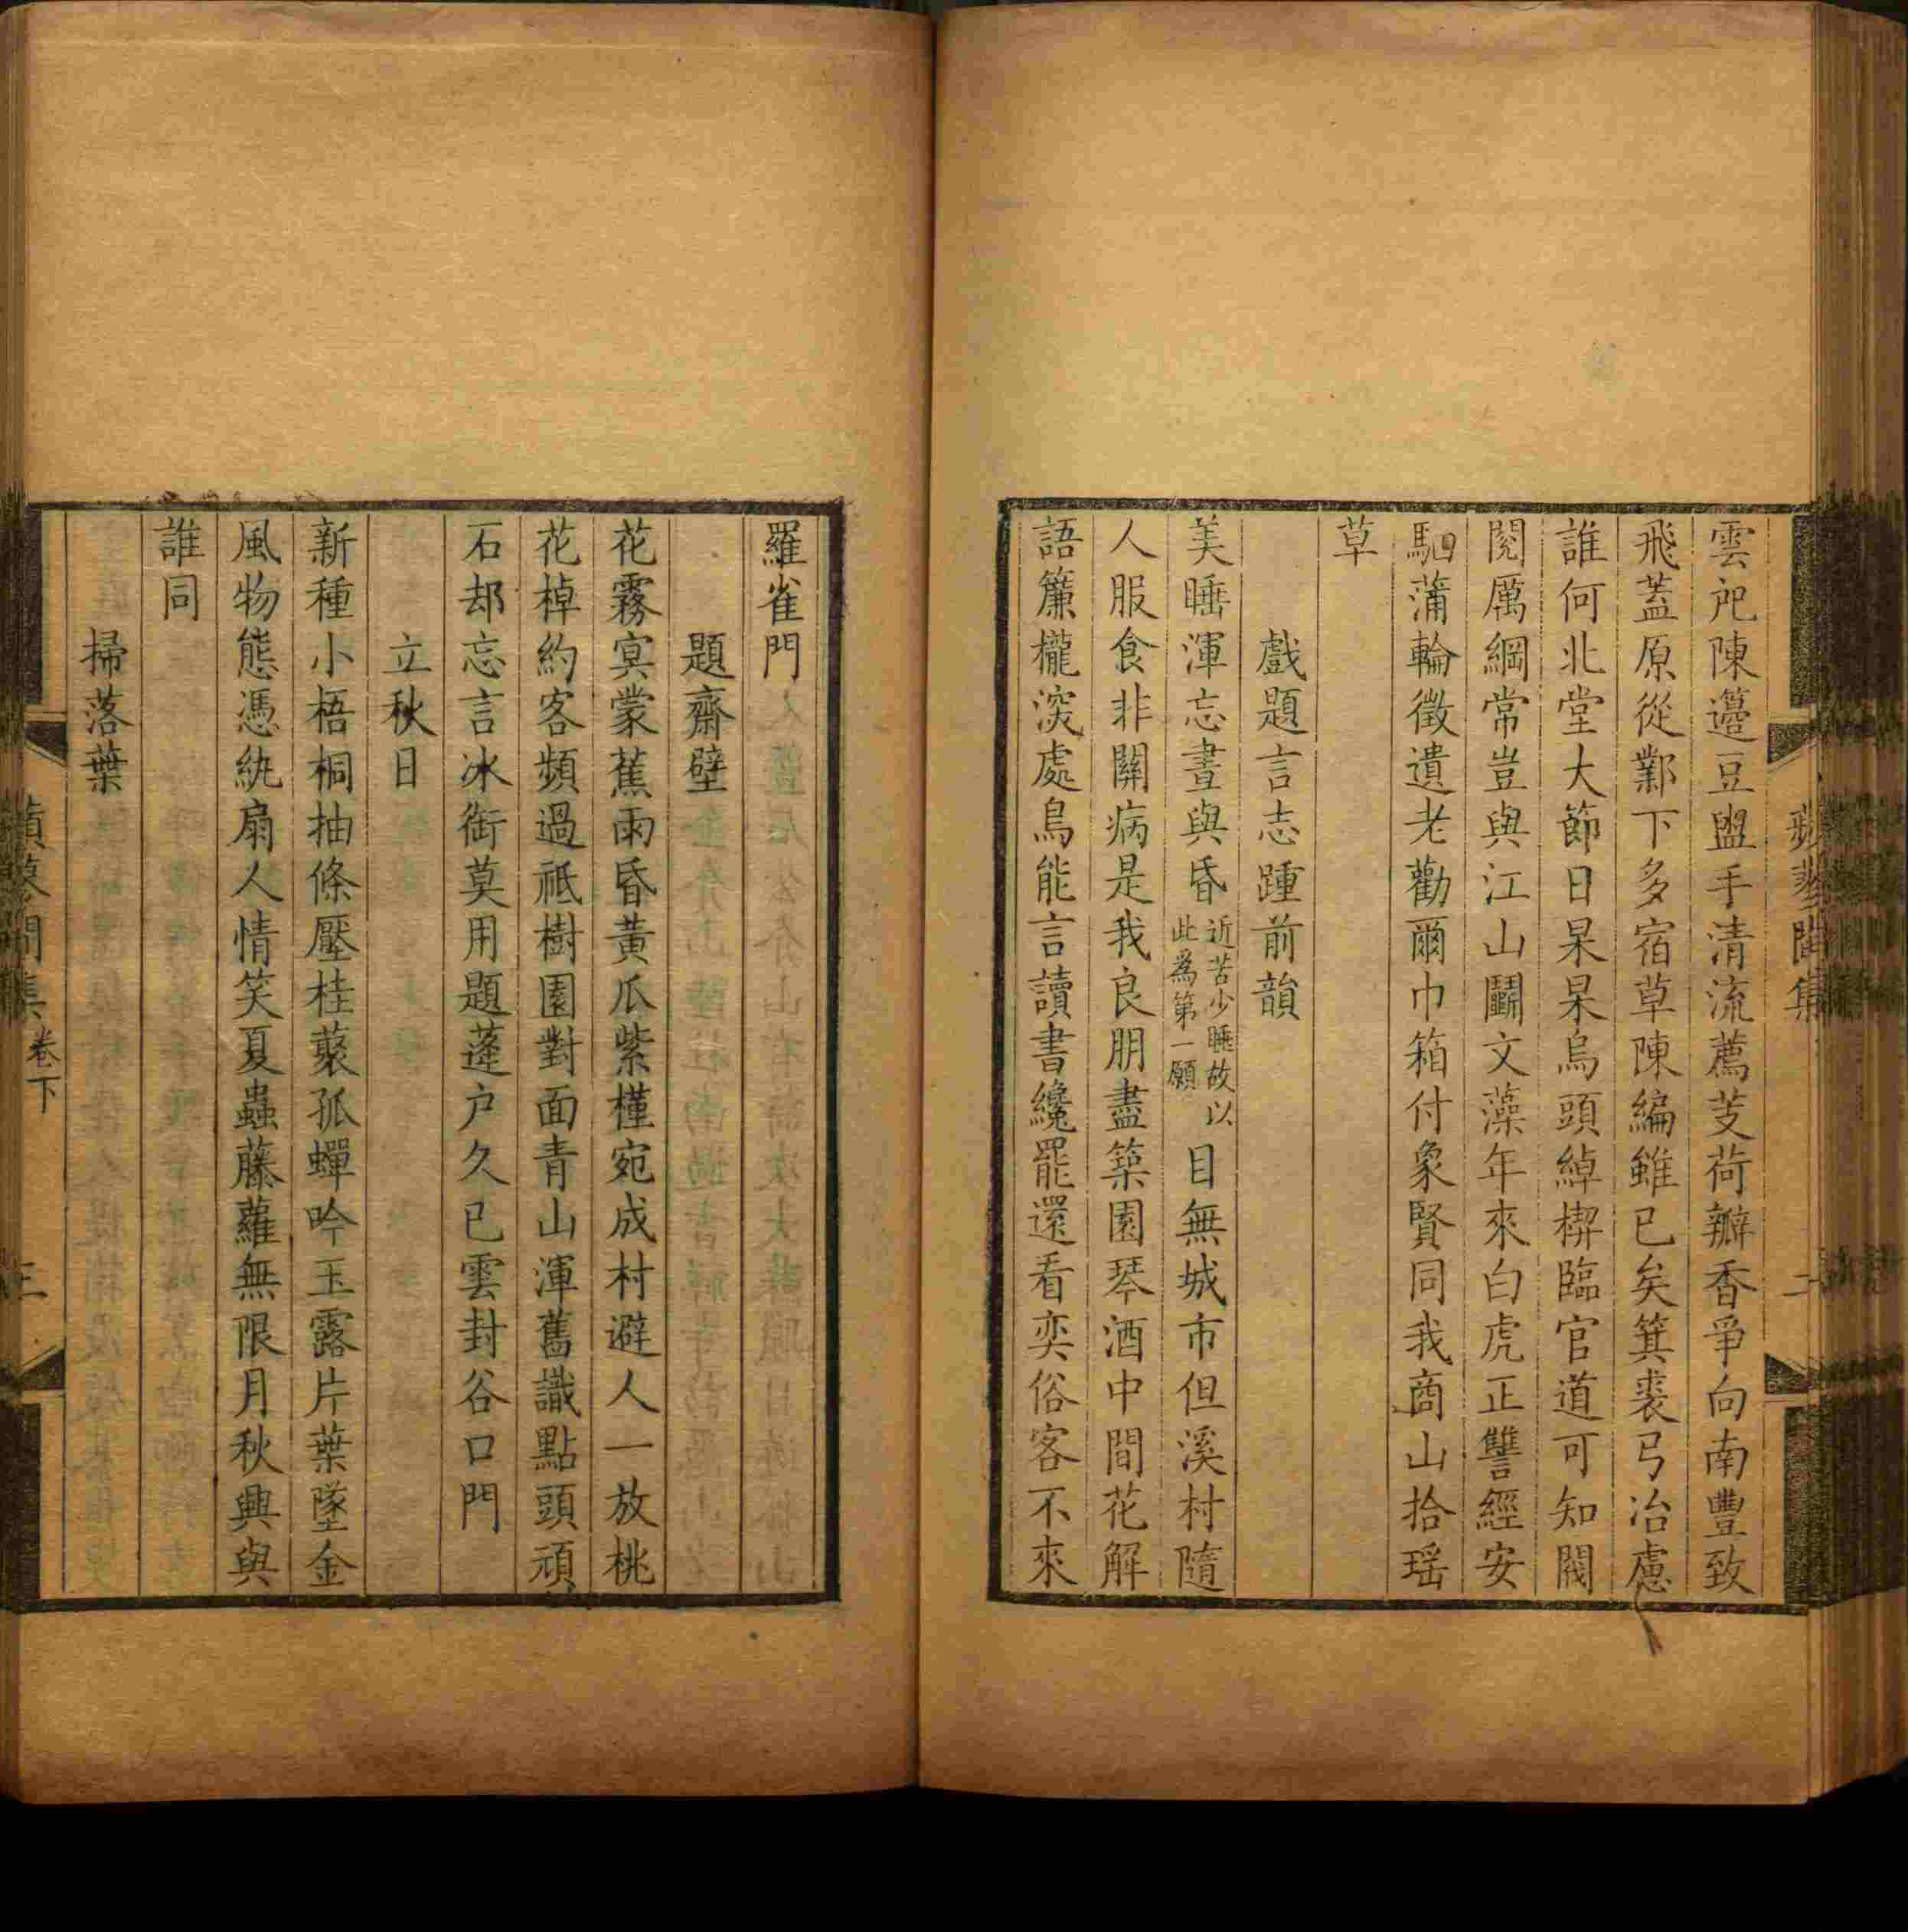 雲祀陳籩豆盥手清流薦芰荷瓣香爭向南豐致
飛蓋原從鄴下多宿草陳編雖已矣箕裘弓冶慮
誰何北堂大節日杲杲烏頭綽楔臨官道可知閥
閱厲綱常豈與江山鬬文藻年來白虎正讐經安
駟蒲輪徵遺老勸爾巾箱付象賢同我商山拾瑶
草
戲題言志踵前韻
美睡渾忘晝與昏近苦少睡故以此為第一願目無城市但溪村隨
人服食非關病是我良朋盡築園琴酒中間花解
語簾櫳深處鳥能言讀書纔罷還看奕俗客不來
羅雀門
題齋壁
花霧冥蒙蕉雨昏黃爪紫槿宛成村避人一放桃
花棹約客頻過祗樹園對面青山渾舊識點頭頑
石却忘言冰銜莫用題蓬户久已雲封谷口門
立秋日
新種小梧桐抽條壓桂藂孤蟬吟玉露片葉墜金
風物態憑紈扇人情笑夏蟲藤蘿無限月秋興與
誰同
掃落葉
卷下
三